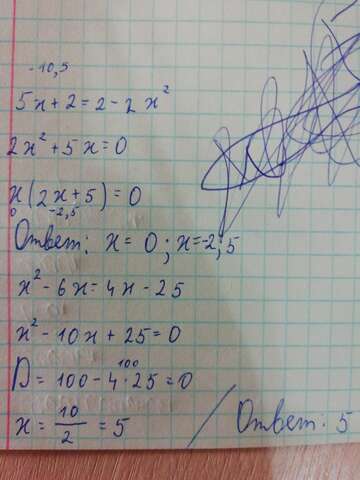 -10,5
5x+2=2-2x²
2x²+5x=0
x(2x+5)=0
0 -2,5
Ответ: x=0; x=-2,5
x²-6x=4x-25
x²-10x+25=0
100
D=100-4·25=0
x=10/2=5
Ответ: 5